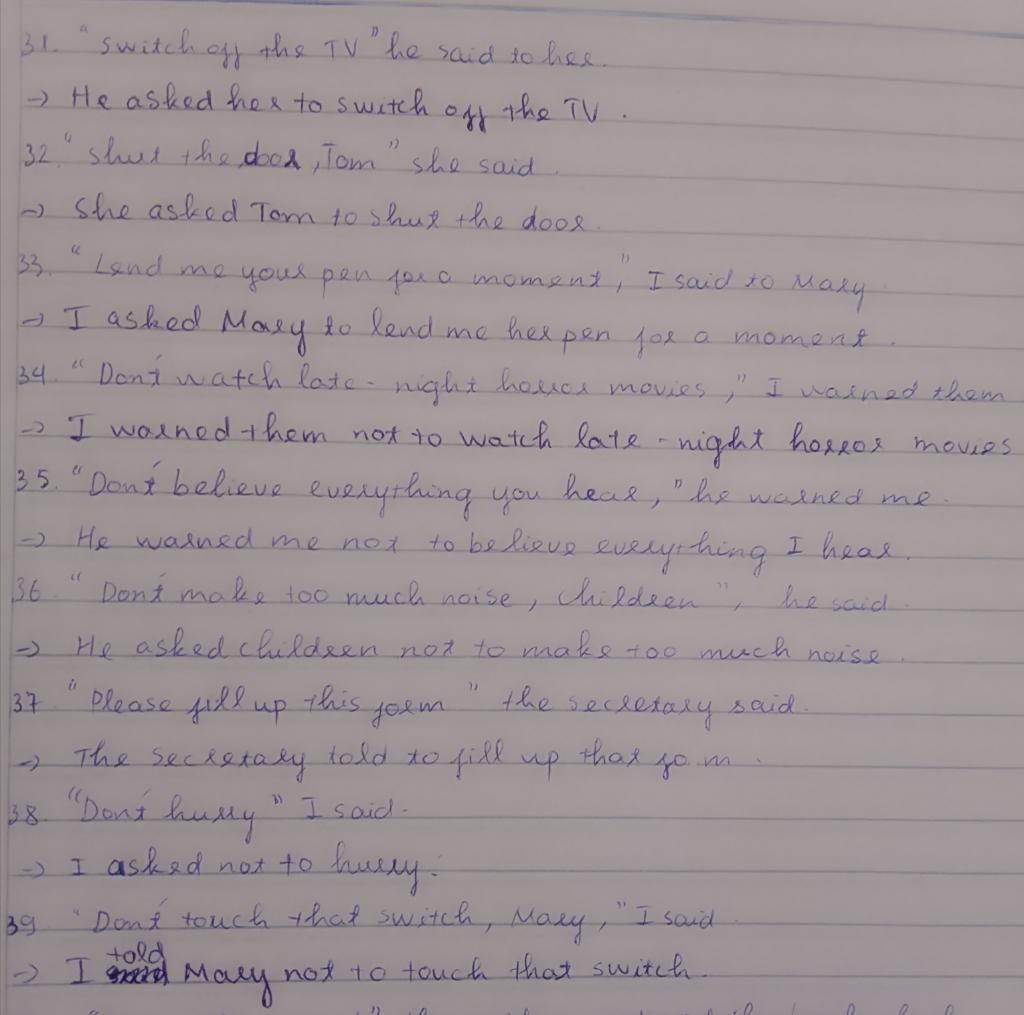 31. "switch off the TV" he said to her.
→ He asked her to switch off the TV.
32. "shut the door, Tom" she said.
→ She asked Tom to shut the door.
33. "Lend me your pen for a moment," I said to Mary.
→ I asked Mary to lend me her pen for a moment.
34. "Don't watch late-night horror movies," I warned them
→ I warned them not to watch late-night horror movies
35. "Don't believe everything you hear," he warned me.
→ He warned me not to believe everything I hear.
36 "Don't make too much noise, children", he said.
→ He asked children not to make too much noise.
37 "Please fill up this form" the secretary said.
→ The secretary told to fill up that fo m.
38. "Don't hurry" I said.
→ I asked not to hurry.
39 "Don't touch that switch, Mary," I said
→ I told Mary not to touch that switch.